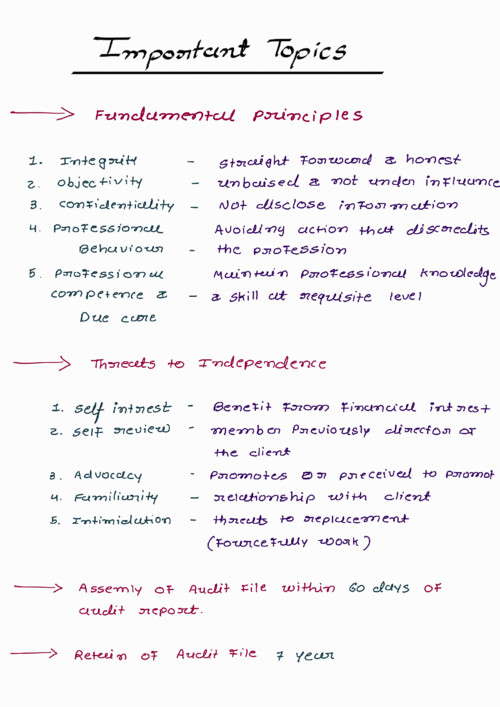 Important Topics
Fundamental Principles
1. Integrity - Straight forward & honest
2. Objectivity - unbaised & not under influance
3. Confidentiality - Not disclose information
4. Professional Avoiding action that discredits
Behaviour - the profession
5. Professional Maintain professional knowledge
competence & - & skill at requisite level
Due care
Threats to Independence
1. Self intrest - Benefit from financial intrest
2. Self review - member previously director of
the client
3. Advocacy - Promotes or preceived to promot
4. Familiarity - relationship with client
5. Intimidation - threats to replacement
(Fourcefully work)
Assemly of Audit File within 60 days of
audit report.
Retein of Audit File 7 year